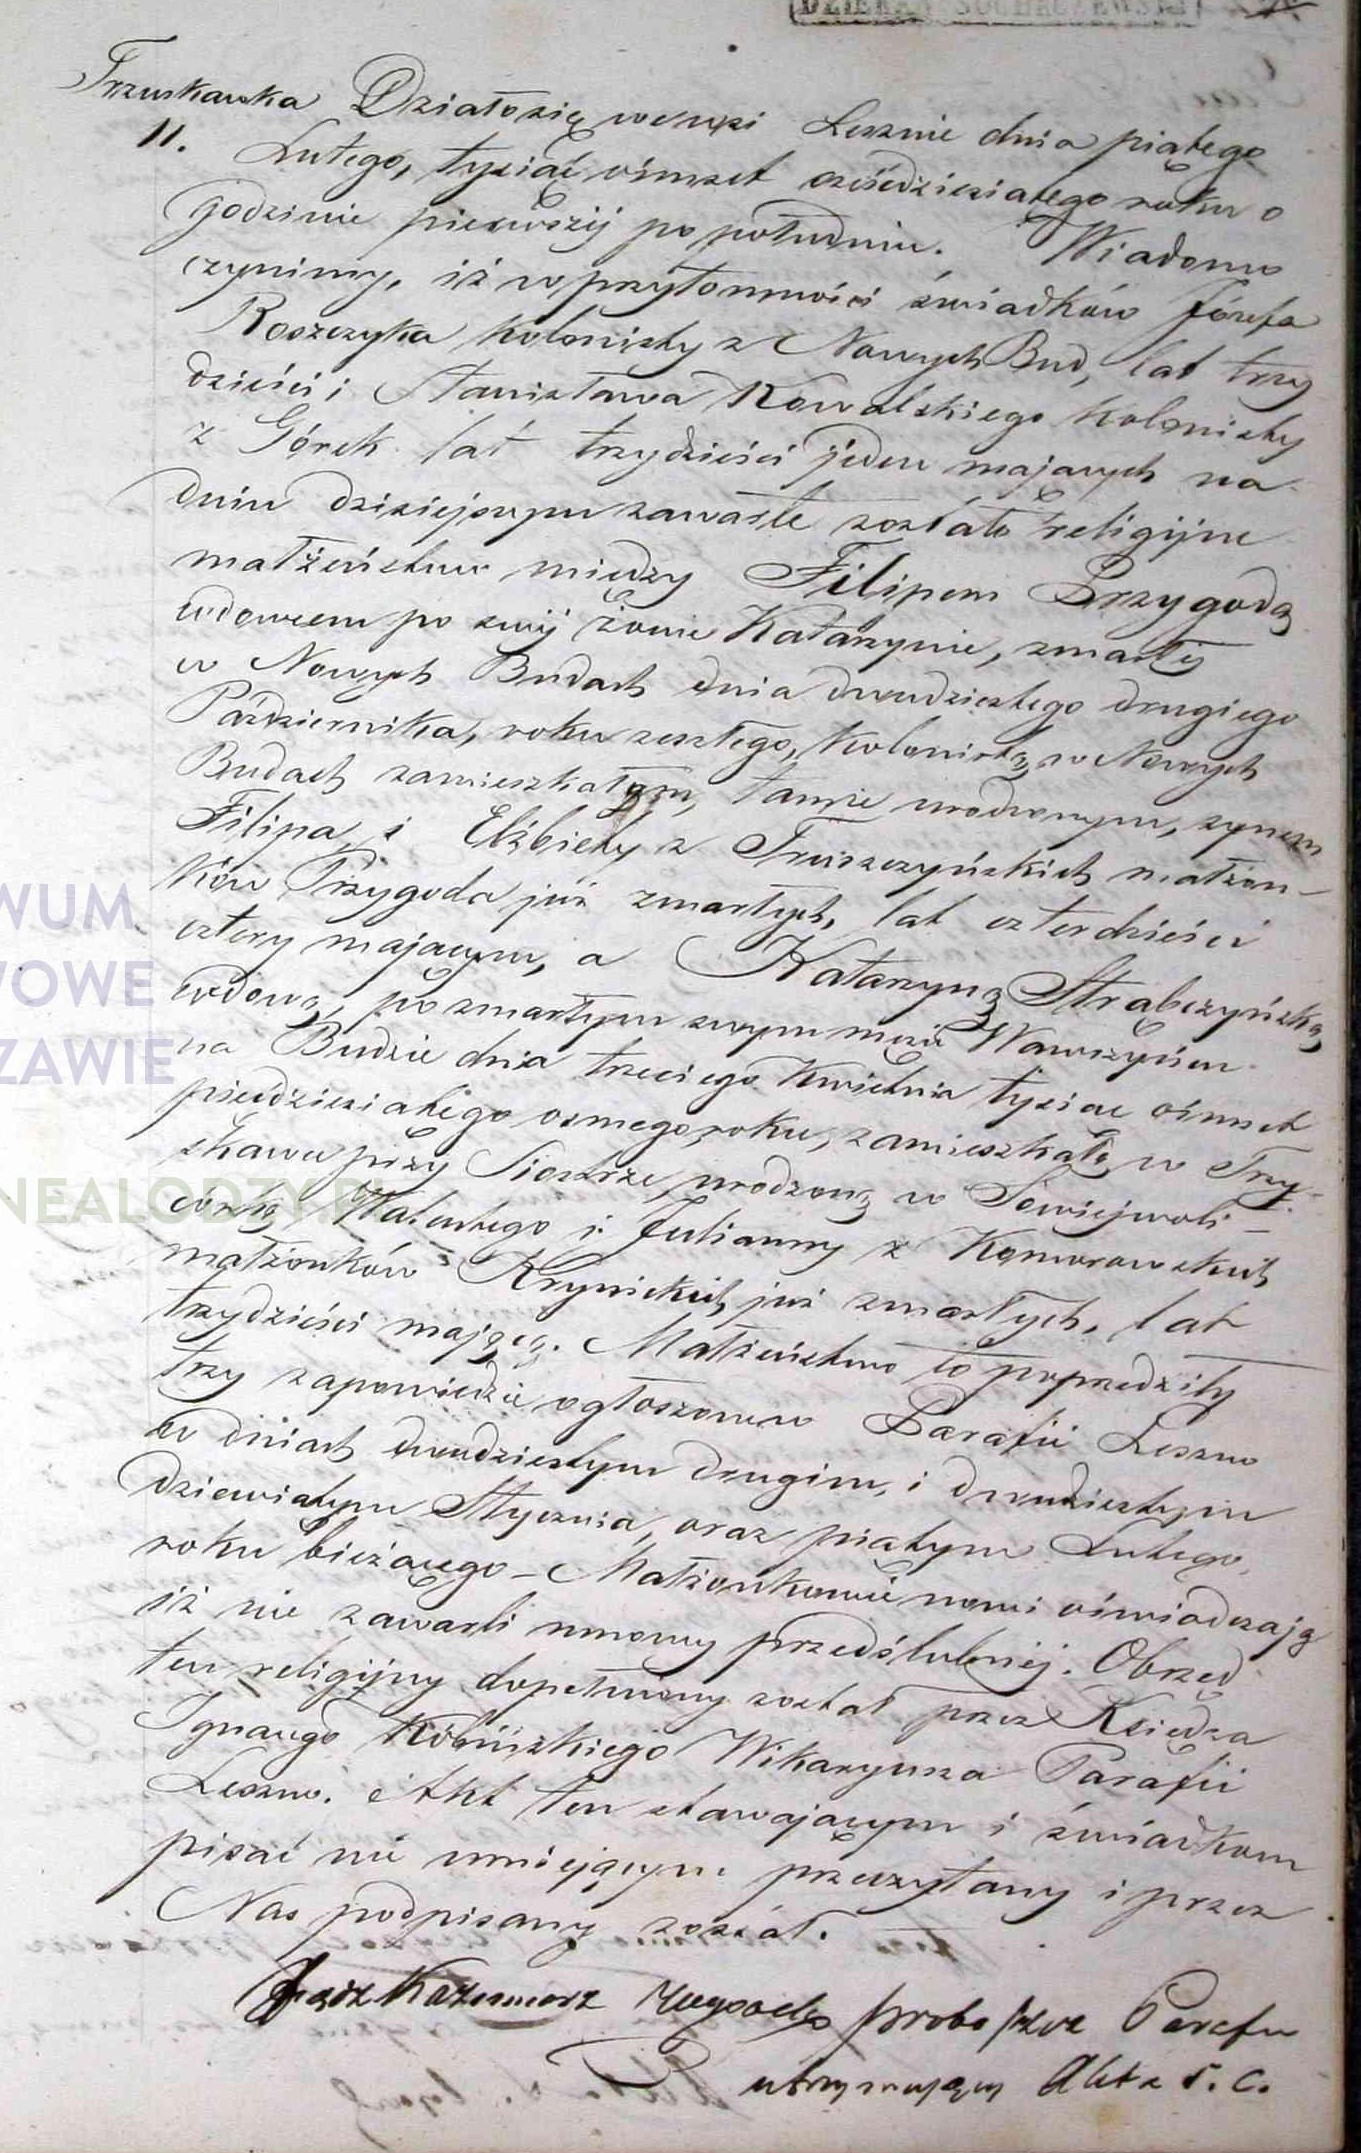 DZIEKAN SOCHACZEWSKI
Trzuskawka Działo się we wsi Lesznie dnia piątego
11. Lutego, tysiąc ośmset sześdziesiątego roku o
godzinie pierwszej po południu. Wiadomo
czynimy, iż w przytomności świadków Józefa
Roszczyka kolonisty z Nowych Bud, lat trzy
dzieści i Stanisława Kowalskiego kolonisty
z Górek lat trzydzieści jeden mających na
dniu dzisiejszym zawarte zostało religijne
małżeństwo między Filipem Przygodą
wdowcem po swej żonie Katarzynie, zmarłej
w Nowych Budach dnia dwudziestego drugiego
Października, roku zeszłego, kolonistą w Nowych
Budach zamieszkałym, tamże urodzonym, synem
Filipa i Elżbiety z Truszczyńskich małżon-
ków Przygoda już zmarłych, lat czterdzieści
cztery mającym, a Katarzyną Strąbczyńską
wdową, po zmarłym swym mężu Wawrzyńcu
na Budzie dnia trzeciego Kwietnia tysiąc ośmset
pięćdziesiątego osmego roku, zamieszkałą w Trzy-
skawce przy Siostrze, urodzoną w Sowiejwoli
córką Walentego i Julianny z Komorowskich
małżonków Krynickich już zmarłych, lat
trzydzieści mającą. Małżeństwo to poprzedziły
trzy zapowiedzie ogłoszone w Parafii Leszno
w dniach dwudziestym drugim, i dwudziestym
dziewiątym Stycznia, oraz piątym Lutego,
roku bieżącego – Małżonkowie nowi oświadczają
iż nie zawarli umowy przedślubnej. Obrzęd
ten religijny dopełniony został przez Księdza
Ignacego Wikaryusza Parafii
Leszno. Akt ten stawającym i świadkom
pisać nie umiejącym przeczytany i przez
Nas podpisany został.
Xiądz Kazimierz proboszcz Parafii
utrzymujący Akta s. c.
WUM
WOWE
ZAWIE
NEALODZY.P